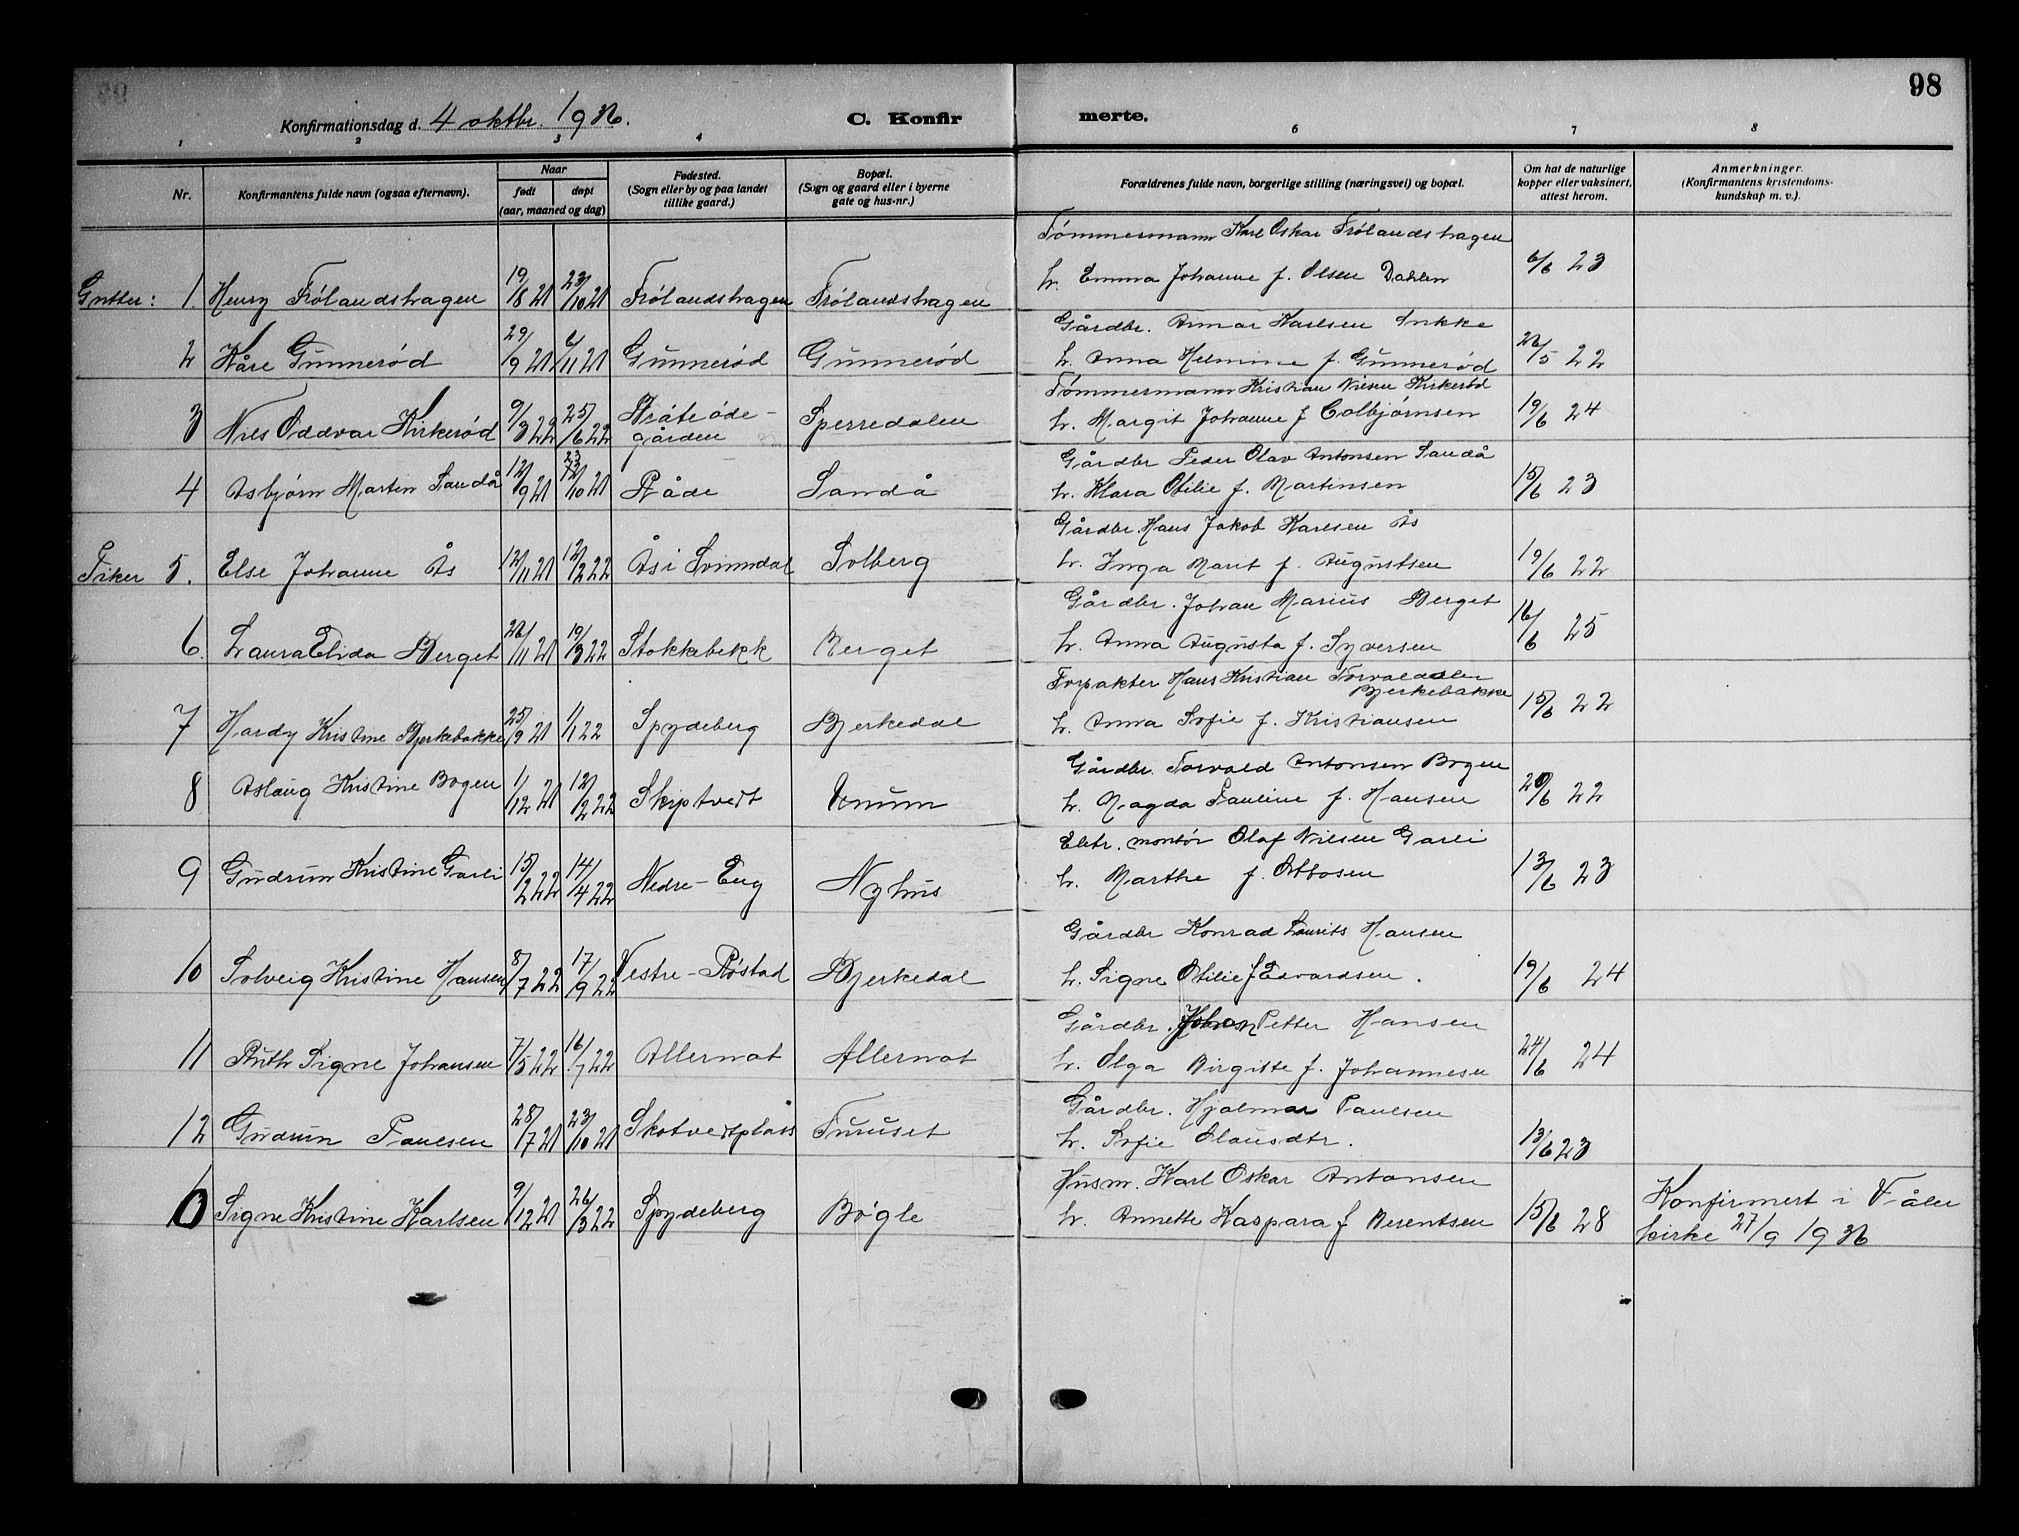 98
Konfirmationsdag d. 4 oktbr. 1936.
C. Konfirmerte.
1 2 3 4 6 7 8
Nr.
Konfirmantens fulde navn (ogsaa efternavn).
Naar
født døpt
(aar, maaned og dag)
Fødested.
(Sogn eller by og paa landet
tillike gaard.)
Bopæl.
(Sogn og gaard eller i byerne
gate og hus-nr.)
Forældrenes fulde navn, borgerlige stilling (næringsvei) og bopæl.
Om hat de naturlige
kopper eller vaksinert,
attest herom.
Anmerkninger.
(Konfirmantens kristendoms-
kundskap m. v.).
Tømmermann Karl Oskar Frølandshagen
Gutter: 1. Henry Frølandshagen 19/8 21 23/10 21 Frølandshagen Frølandshagen h. Emma Johanne f. Olsen Dahlen 6/6 23
Gårdbr. Einar Karlsen
2 Kåre Gunnerød 29/9 21 6/11 21 Gunnerød Gunnerød h. Anna Helmine f. Gunnerød 26/5 22
Tømmermann Kristian Nilsen Kirkerød
3 Nils Oddvar Kirkerød 9/3 22 25/6 22 Bråteøde-
gården Sperredalen h. Margit Johanne f Colbjørnsen 19/6 24
Gårdbr Peder Olav Antonsen Sandå
4 Asbjørn Martin Sandå 12/9 21 23/10 21 Råde Sandå h. Klara Otilie f. Martinsen 15/6 23
Gårdbr. Hans Jakob Karlsen Ås
Piker 5. Else Johanne Ås 12/11 21 12/2 22 Ås i Svinndal Solberg h. Inga Marit f. Augustsen 19/6 22
Gårdbr. Johan Marius Berget
6. Laura Elida Berget 26/11 21 19/3 22 Stokkebekk Berget h. Anna Augusta f. Syversen 16/6 25
Forpakter Hans Kristian Torvaldsen
Bjerkebakke
7 Hardy Kristine Bjerkebakke 25/9 21 1/1 22 Spydeberg Bjerkedal h. Anna Sofie f. Kristiansen 15/6 22
Gårdbr. Torvald Antonsen Bogen
8 Aslaug Kristine Bogen 1/12 21 12/2 22 Skiptvert h. Magda Pauline f. Hansen 20/6 22
Elktr. montør Olaf Nilsen Garli
9 Gudrun Kristine Garli 15/2 22 14/4 22 Nedre-Eng Nyhus h. Marthe f. Ottosen 13/6 23
Gårdbr Konrad Laurits Hansen
10 Solveig Kristine Hansen 8/7 22 17/9 22 Vestre-Røstad Bjerkedal h. Signe Otilie f Edvardsen. 19/6 24
Gårdbr. Johan Petter Hansen
11 Ruth Signe Johansen 7/5 22 16/7 22 Allernot Allernot h. Olga Birgitte f. Johannesen 24/6 24
Gårdbr. Hjalmar Paulsen
12 Gudrun Paulsen 28/7 21 23/10 21 Skotvertplass Furuset h. Sofie Olausdtr. 13/6 23
Husm. Karl Oskar Antonsen
Signe Kristine Karlsen 9/12 21 26/3 22 Spydeberg Bøgle h. Annette Kaspara f Berentsen 15/6 28 Konfirmert i Våler
kirke 27/9 1936